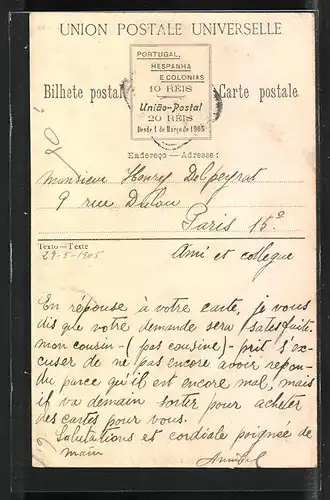 UNION POSTALE UNIVERSELLE
PORTUGAL,
HESPANHA
E COLONIAS
10 REIS
União-Postal
20 REIS
Desde 1 de Março de 1905
Bilhete postal
Carte postale
Endereço — Adresse:
Monsieur Henry Delpeyrat
9 rue Dalou
Paris 15e
Texto — Texte
29-5-1905
Ami et collegue
En réponse à votre carte, je vous
dis que votre demande sera satesfaite.
Mon cousin - (pas cousine) - prit s'ex-
cuser de ne pas encore avoir repon-
du parce qu'il est encore mal, mais
if va demain sortir pour acheter
des cartes pour vous.
Salutations et cordiale poignée de
main